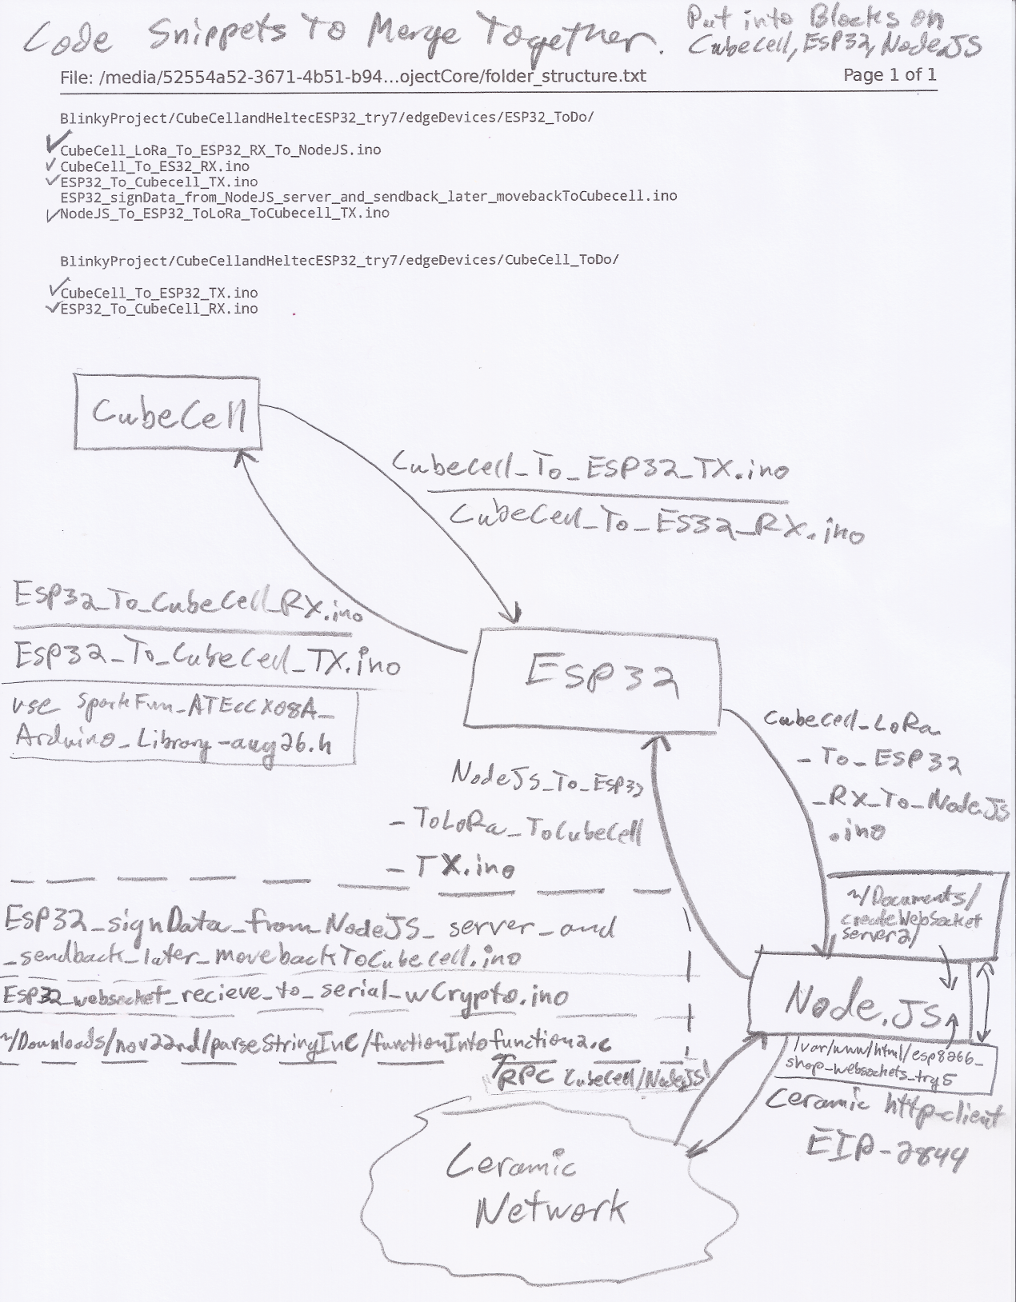 Code Snippets To Merge Together.
Put into Blocks on
CubeCell, ESP32, NodeJS
File: /media/52554a52-3671-4b51-b94...ojectCore/folder_structure.txt
Page 1 of 1
BlinkyProject/CubeCellandHeltecESP32_try7/edgeDevices/ESP32_ToDo/
CubeCell_LoRa_To_ESP32_RX_To_NodeJS.ino
CubeCell_To_ES32_RX.ino
ESP32_To_Cubecell_TX.ino
ESP32_signData_from_NodeJS_server_and_sendback_later_movebackToCubecell.ino
NodeJS_To_ESP32_ToLoRa_ToCubecell_TX.ino
BlinkyProject/CubeCellandHeltecESP32_try7/edgeDevices/CubeCell_ToDo/
CubeCell_To_ESP32_TX.ino
ESP32_To_CubeCell_RX.ino
CubeCell
Cubecell_To_ESP32_TX.ino
CubeCell_To_ES32_RX.ino
ESP32_To_CubeCell_RX.ino
ESP32_To_CubeCell_TX.ino
use SparkFun_ATECCX08A_
Arduino_Library-aug26.h
ESP32
Cubecell_LoRa
_To_ESP32
_RX_To_NodeJS
.ino
NodeJS_To_ESP32
_ToLoRa_ToCubeCell
_TX.ino
~/Documents/
createWebSocket
server2/
ESP32_signData_from_NodeJS_server_and
_sendback_later_movebackToCubecell.ino
ESP32_websocket_recieve_to_serial_wCrypto.ino
~/Downloads/nov22nd/parseStringInC/functionIntofunction2.c
RPC CubeCell/NodeJS
Node.JS
/var/www/html/esp8266_
shop_websockets_try5
Ceramic http-client
EIP-2844
Ceramic
Network